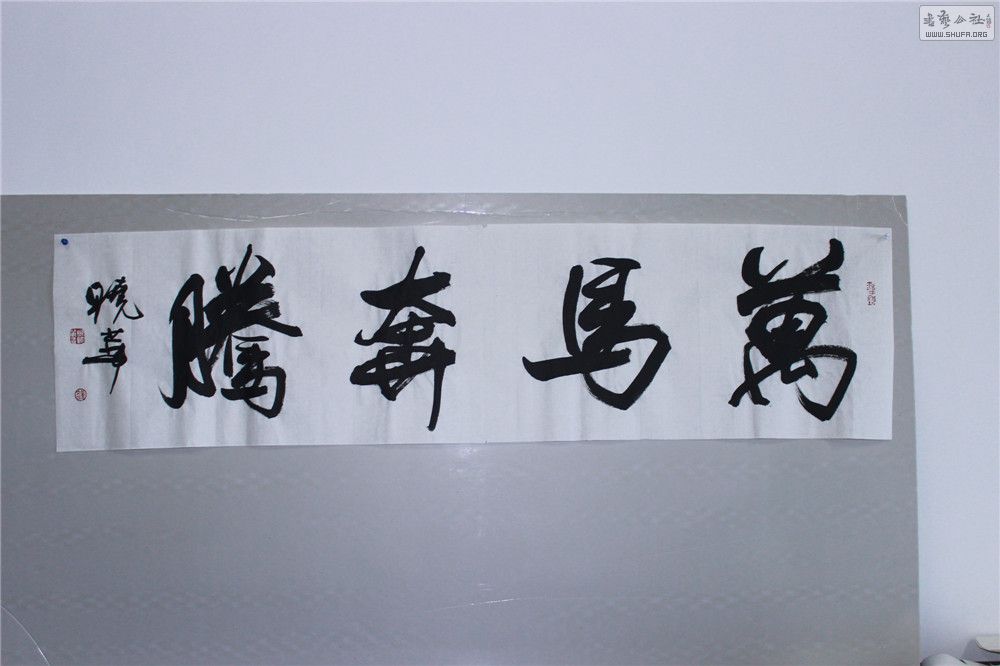 萬馬奔騰
曉華
書藝公社
WWW.SHUFA.ORG